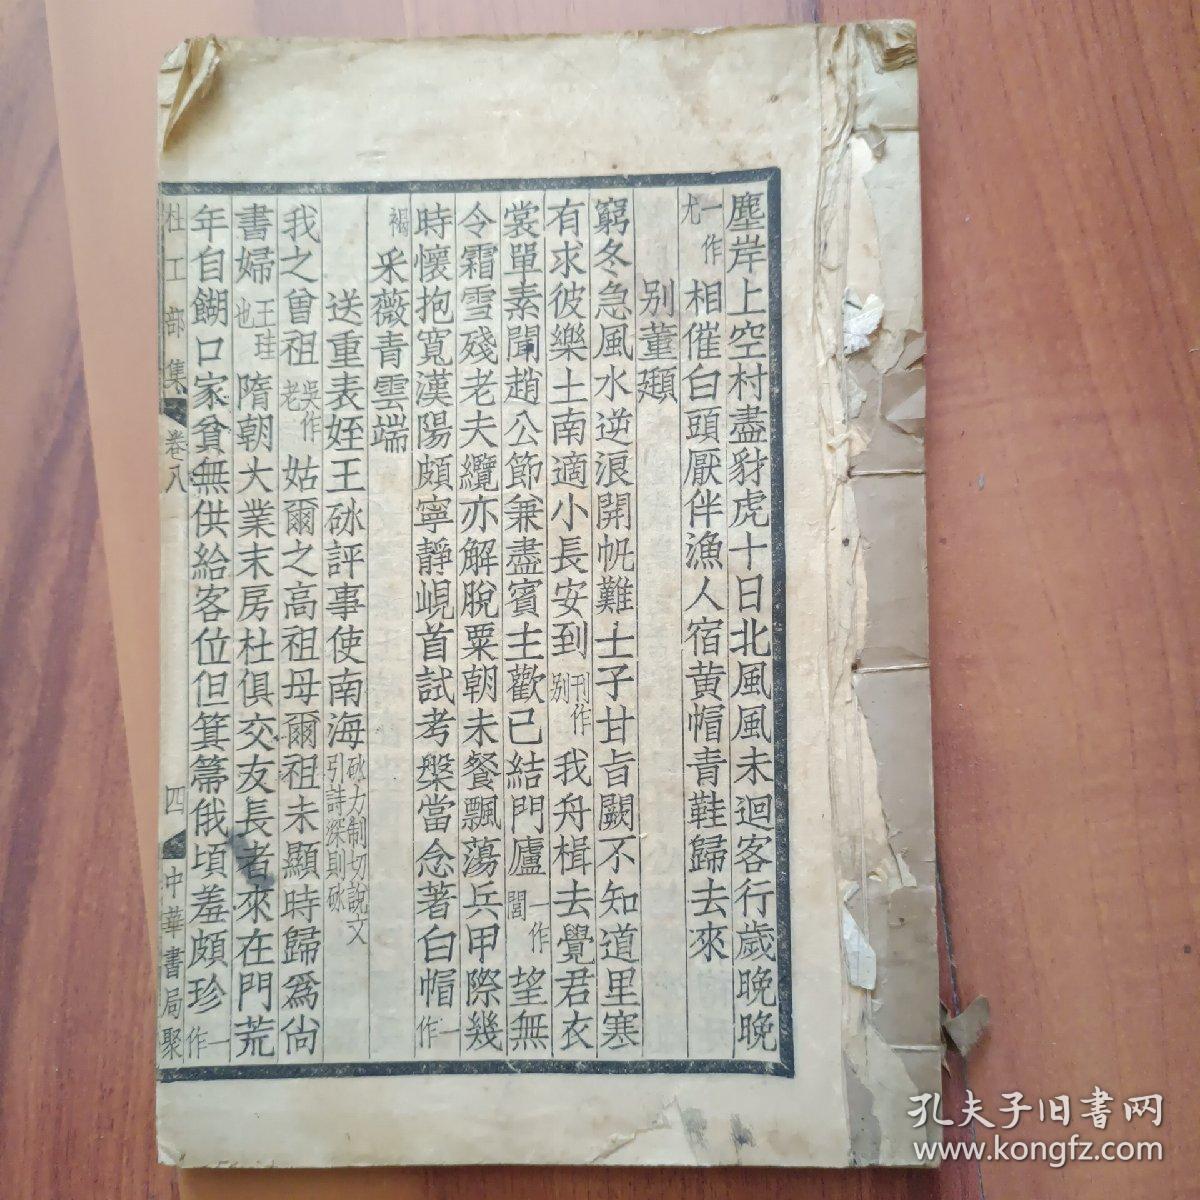 塵岸上空村盡豺虎十日北風風未迴客行歲晚晚
一作尤相催白頭厭伴漁人宿黃帽青鞋歸去來
別董頲
窮冬急風水逆浪開帆難士子甘旨闕不知道里寒
有求彼樂土南適小長安到刊作別我舟楫去覺君衣
裳單素聞趙公節兼盡賓主歡已結門廬一作閭望無
令霜雪殘老夫纜亦解脫粟朝未餐飄蕩兵甲際幾
時懷抱寬漢陽頗寧靜峴首試考槃當念著白帽一作
褐采薇青雲端
送重表姪王砅評事使南海砅力制切說文引詩深則砅
我之曾祖吳作老姑爾之高祖母爾祖未顯時歸爲尙
書婦王珪也隋朝大業末房杜俱交友長者來在門荒
年自餬口家貧無供給客位但箕箒俄頃羞頗珍一作
杜工部集 卷八 四 中華書局聚
孔夫子旧书网
www.kongfz.com